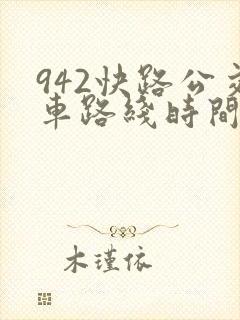 942快路公交
車路綫時間
木瑾依